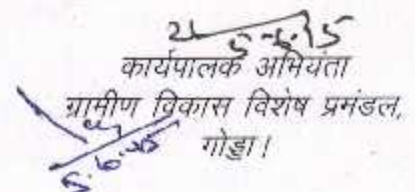 कार्यपालक अभियंता
ग्रामीण विकास विशेष प्रमंडल,
गोड्डा।